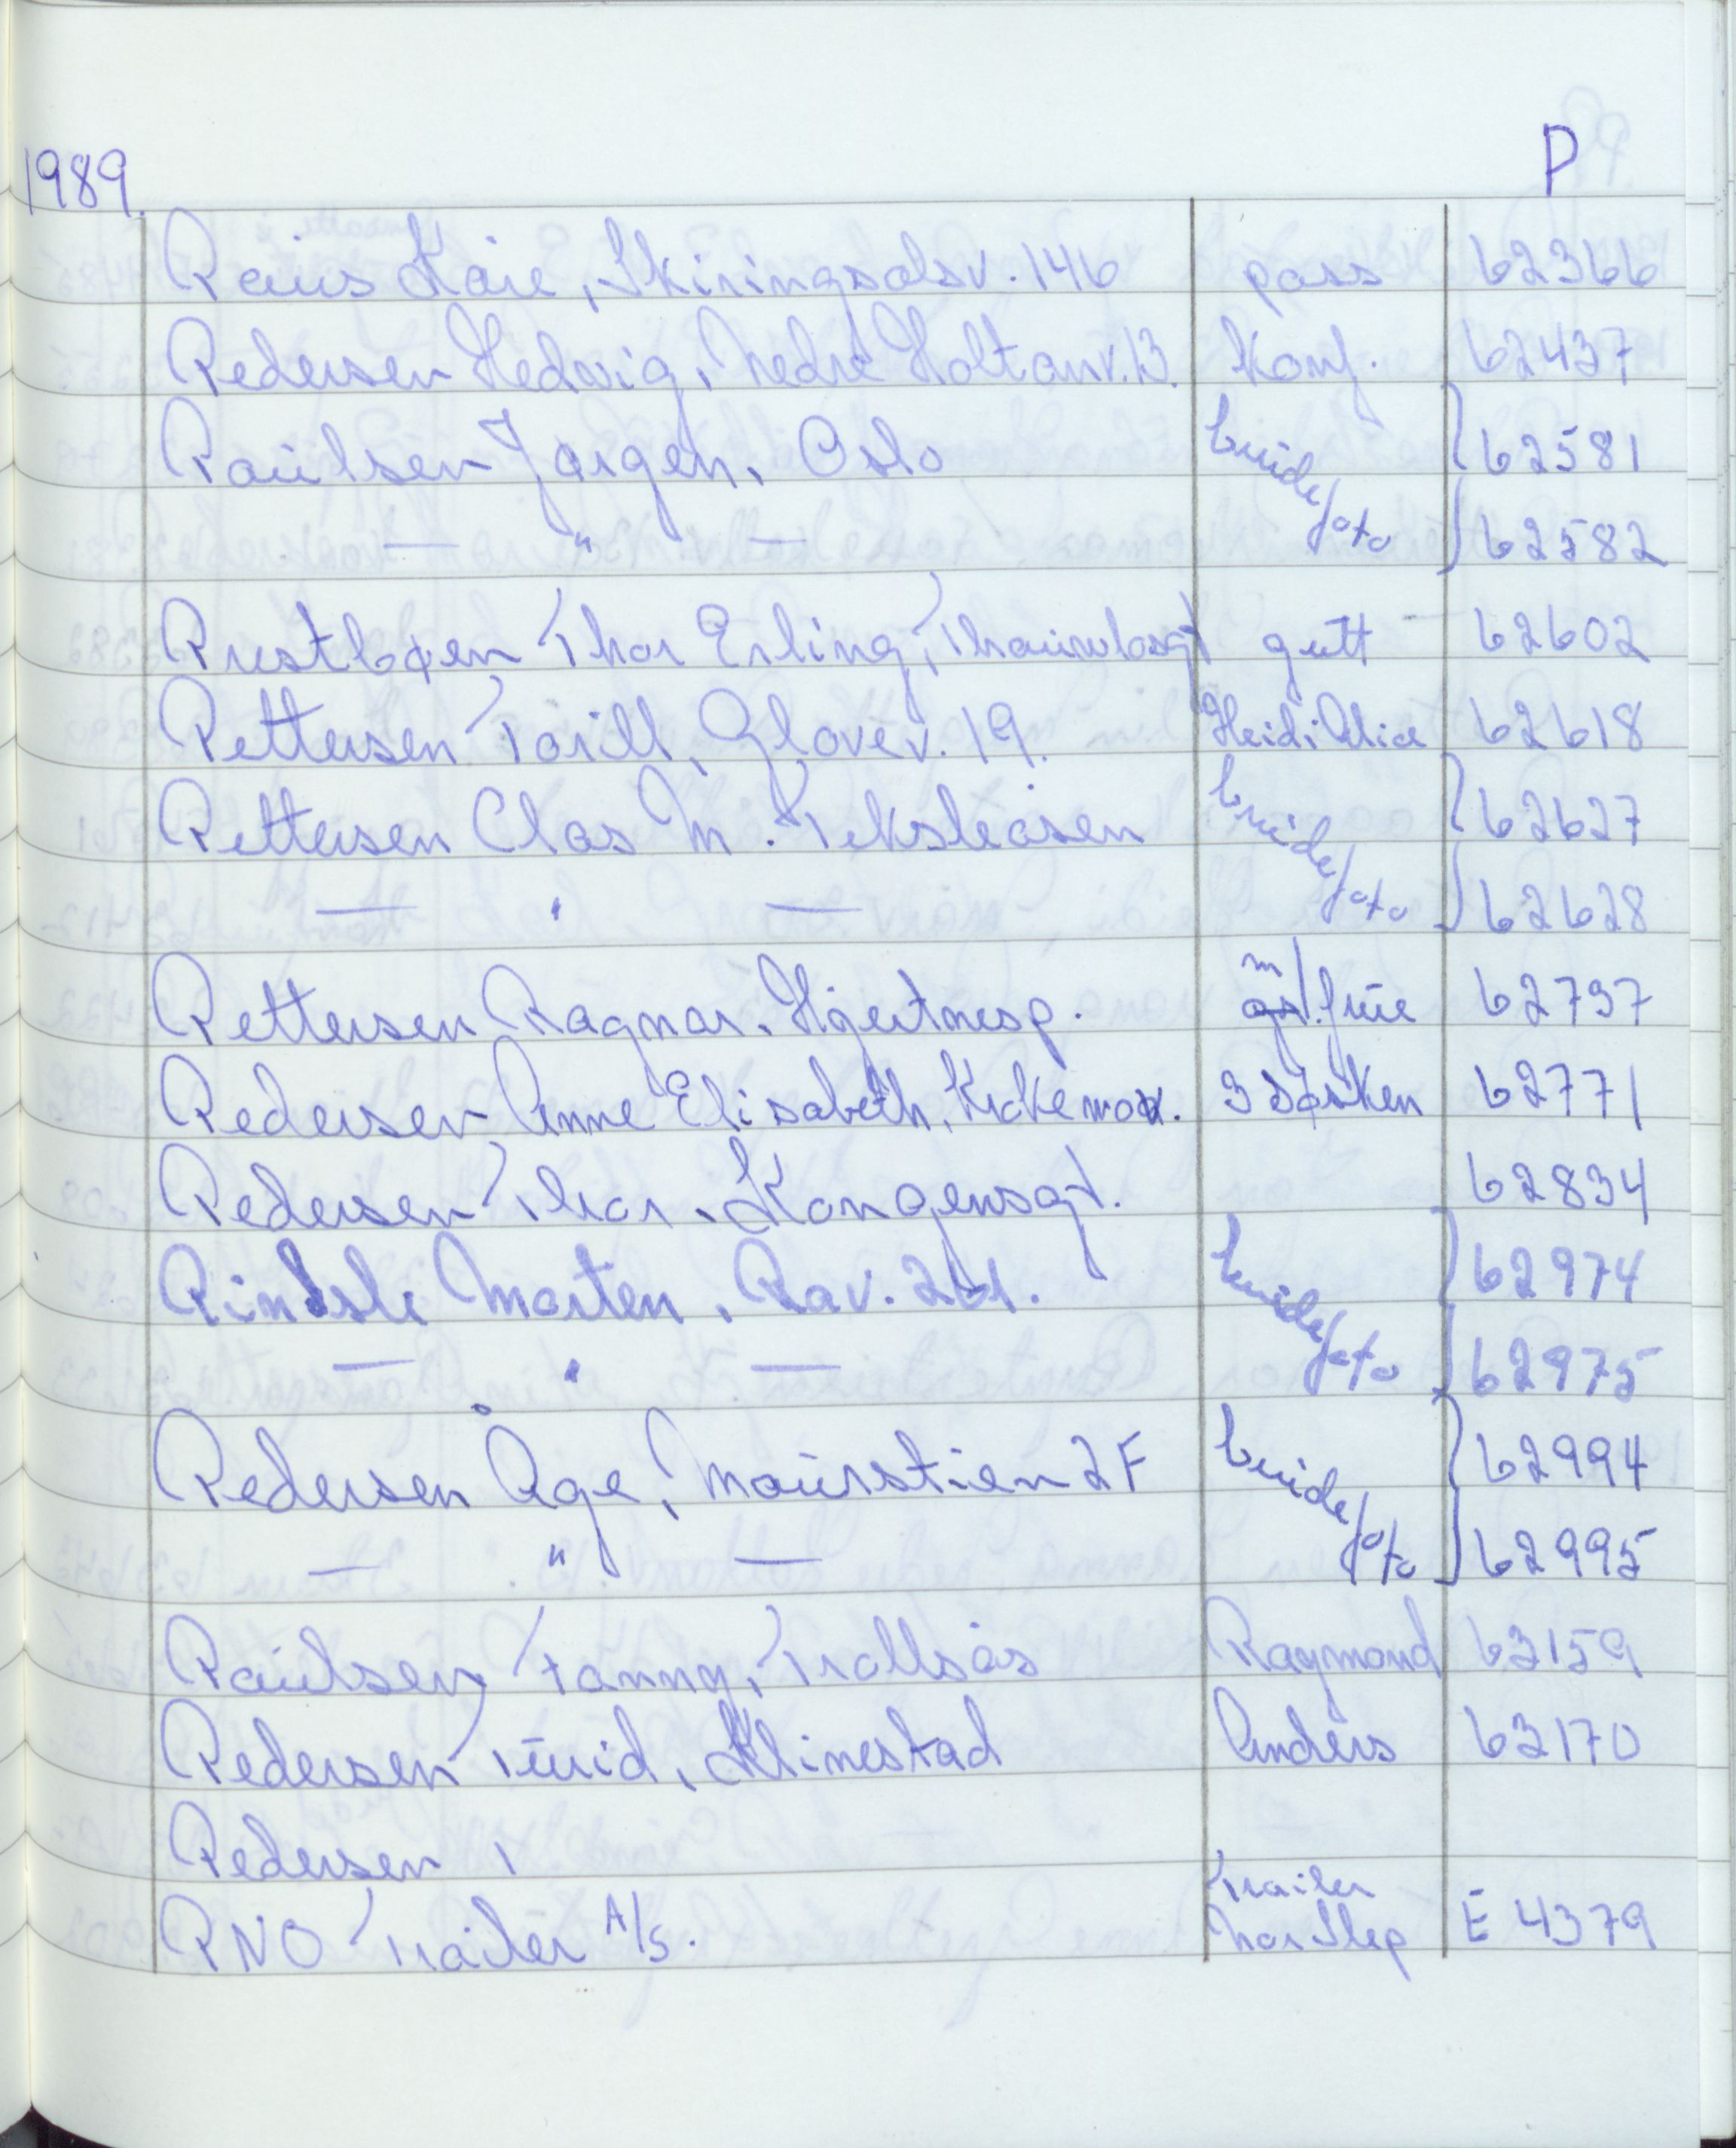 1989. P
Paus Kåre, Skiringsalsv. 146 pass 62366
Pedersen Hedvig, Nedre Holtanv. 13. Konf. 62437
Paulsen Jørgen, Oslo brude 62581
— " — foto 62582
Prestbøen Thor Erling, Thaulowsgt gutt 62602
Pettersen Torill, Glovev. 19. Heidi Alice 62618
Pettersen Clas M. Veksleåsen brude 62627
— " — foto 62628
Pettersen Ragnar. Hjertnesp. m/frue 62737
Pedersen Anne Elisabeth, Krokemov. 3 søsken 62771
Pedersen Thor. Kongensgt. 62834
Morten, Rav. 261. brude 62974
— " — foto 62975
Pedersen Åge, Maurstien 2F brude 62994
— " — foto 62995
Paulsen Fanny, Trollsås Raymond 63159
Pedersen Turid, Klinestad Anders 63170
Pedersen,
PNO Trailer A/S. trailer E 4379